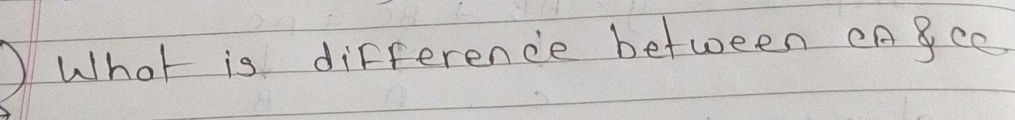 ) What is difference between CA & CC